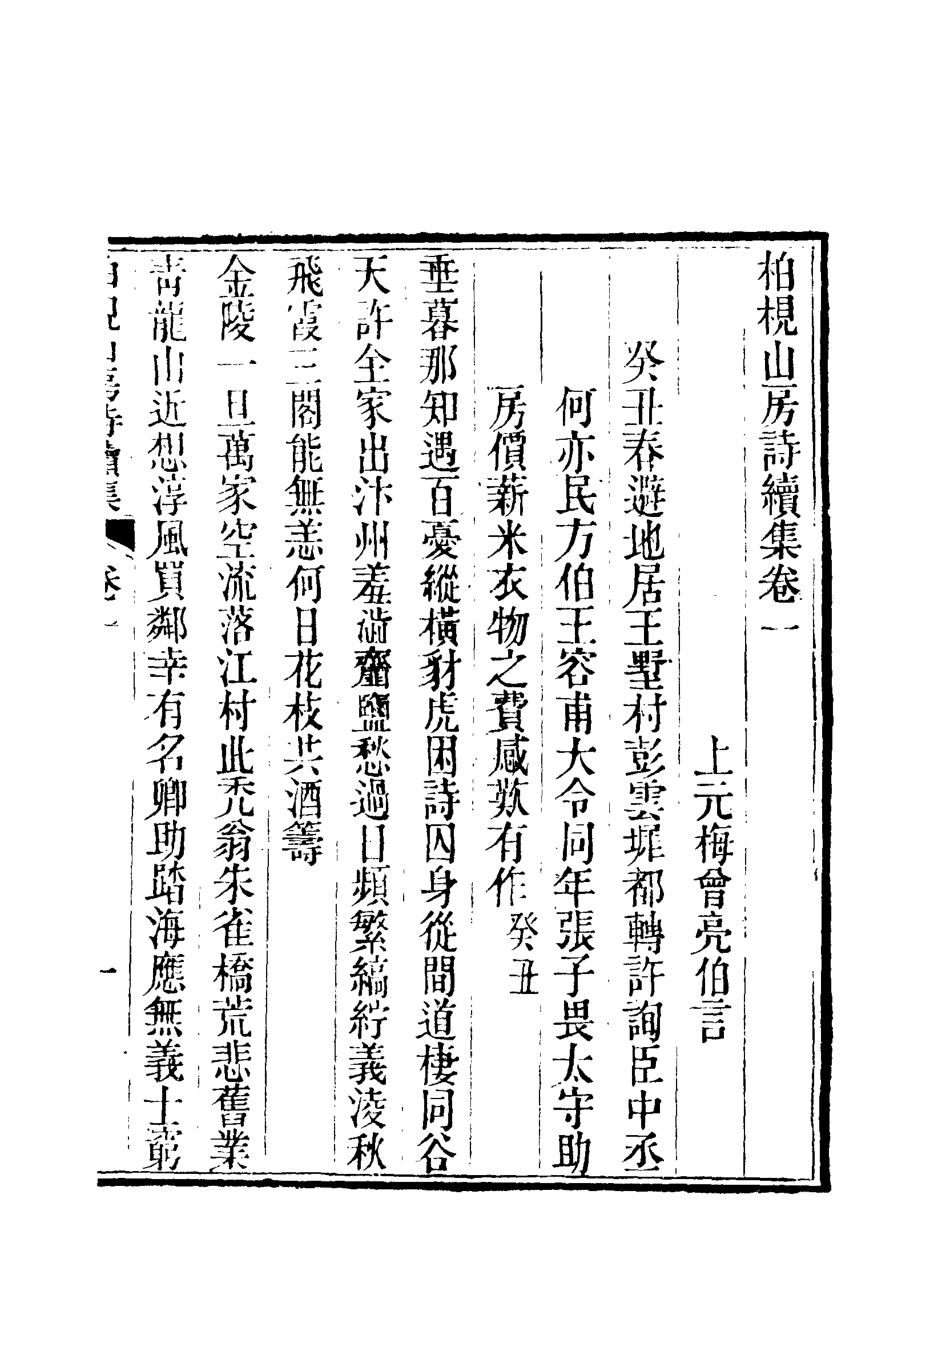 柏梘山房詩續集卷一
上元梅曾亮伯言
癸丑春避地居王墅村彭雲墀都轉許詢臣中丞
何亦民方伯王容甫大令同年張子畏太守助
房價薪米衣物之費感歎有作癸丑
垂暮那知遇百憂縱橫豺虎困詩囚身從間道棲同谷
天許全家出汴州羞澁虀鹽愁過日頻繁縞紵義淩秋
飛霞三閣能無恙何日花枝共酒籌
金陵一旦萬家空流落江村此禿翁朱雀橋荒悲舊業
青龍山近想淳風買鄰幸有名卿助踏海應無義士窮
柏梘山房詩續集 卷一 一